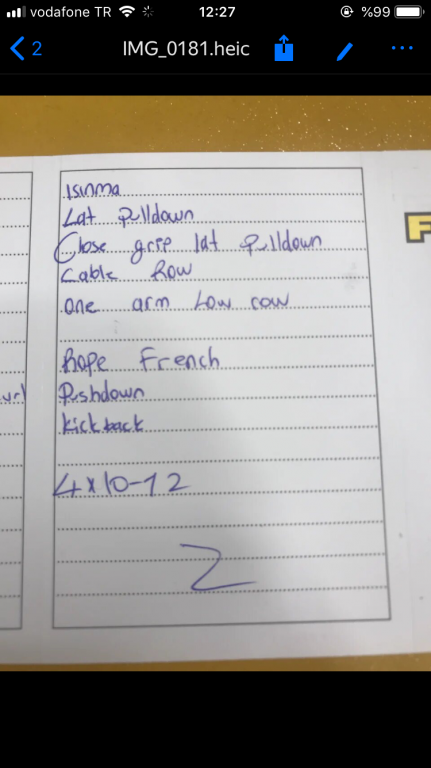 vodafone TR 12:27 %99
2 IMG_0181.heic
Isınma
Lat pulldown
Close grip lat pulldown
Cable Row
one arm Low row
Rope French
url Pushdown
kickback
4x10-12
2
F